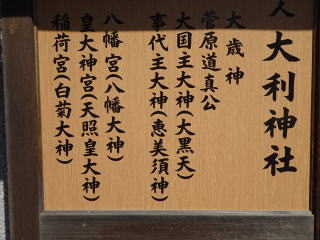 大利神社
大歳神
菅原道真公
大国主大神(大黒天)
事代主大神(恵美須神)
八幡宮(八幡大神)
皇大神宮(天照皇大神)
稲荷宮(白菊大神)